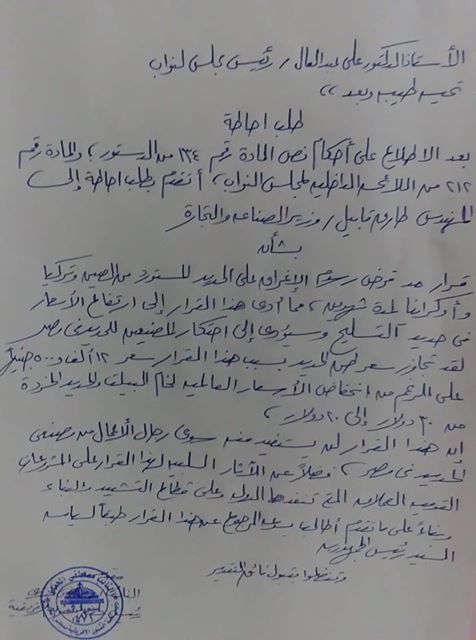 الأستاذ الدكتور على عبد العال / رئيس مجلس النواب
تحية طيبة وبعد ،،
طلب احاطة
بعد الاطلاع على أحكام نص المادة رقم ١٣٤ من الدستور ، والمادة رقم
٢١٢ من اللائحة الداخلية لمجلس النواب ، أتقدم بطلب احاطة إلى
المهندس طارق قابيل / وزير الصناعة والتجارة
بشأن
قرار مد فرض رسوم الإغراق على الحديد المستورد من الصين وتركيا
وأوكرانيا لمدة شهرين ، مما أدى هذا القرار إلى ارتفاع الأسعار
فى حديد التسليح وسيؤدى إلى احتكار المصنعين للحديد فى مصر
لقد تجاوز سعر طن الحديد بسبب هذا القرار سعر ١٢ ألف و ٥٠٠ جنيه
على الرغم من انخفاض الأسعار العالمية لخام البيلت والحديد الخردة
من ٣٠ دولار إلى ٢٠ دولار ،
إن هذا القرار لن يستفيد منه سوى رجال الأعمال من مصنعى
الحديد فى مصر ، فضلاً عن الآثار السلبية لهذا القرار على المشروعات
القومية العملاقة التى تنفذها الدولة وعلى قطاع التشييد والبناء
وبناءً على ما تقدم أطالب بسرعة الرجوع عن هذا القرار طبقاً لسياسة
السيد رئيس الجمهورية
وتفضلوا بقبول فائق التقدير